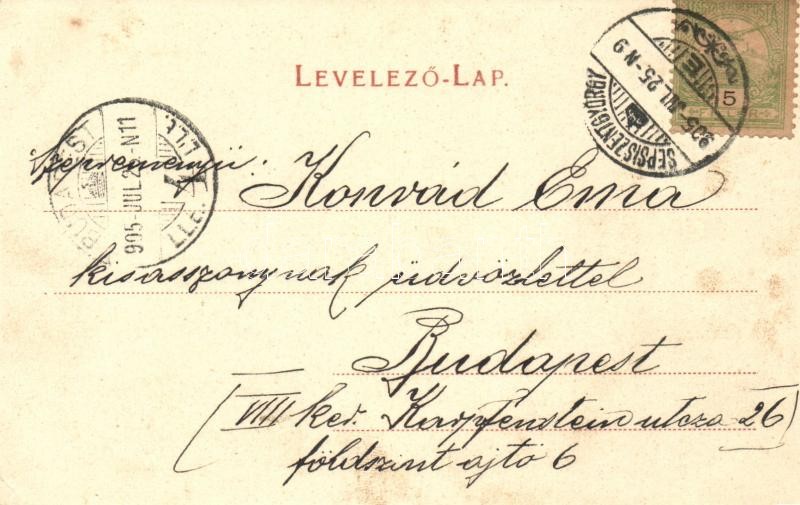 LEVELEZŐ-LAP.
5
SEPSISZENTGYÖRGY
905 JUL 25-N 9
BUDAPEST
905 JUL 2 -N11
Konrád Ema
kisasszonynak üdvözlettel
Budapest
VIII ker. Karpfenstein utcza 26
földszint ajtó 6